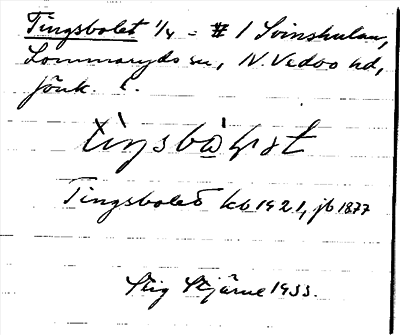 Tingsbolet 1/4 = # 1 Svinshulan,
Lommaryds sn, N. Vedbo hd,
Jönk. l.
tìŋsbò̀ɫət
Tingsboled kb 1921, jb 1877
Stig Stjärne 1933.